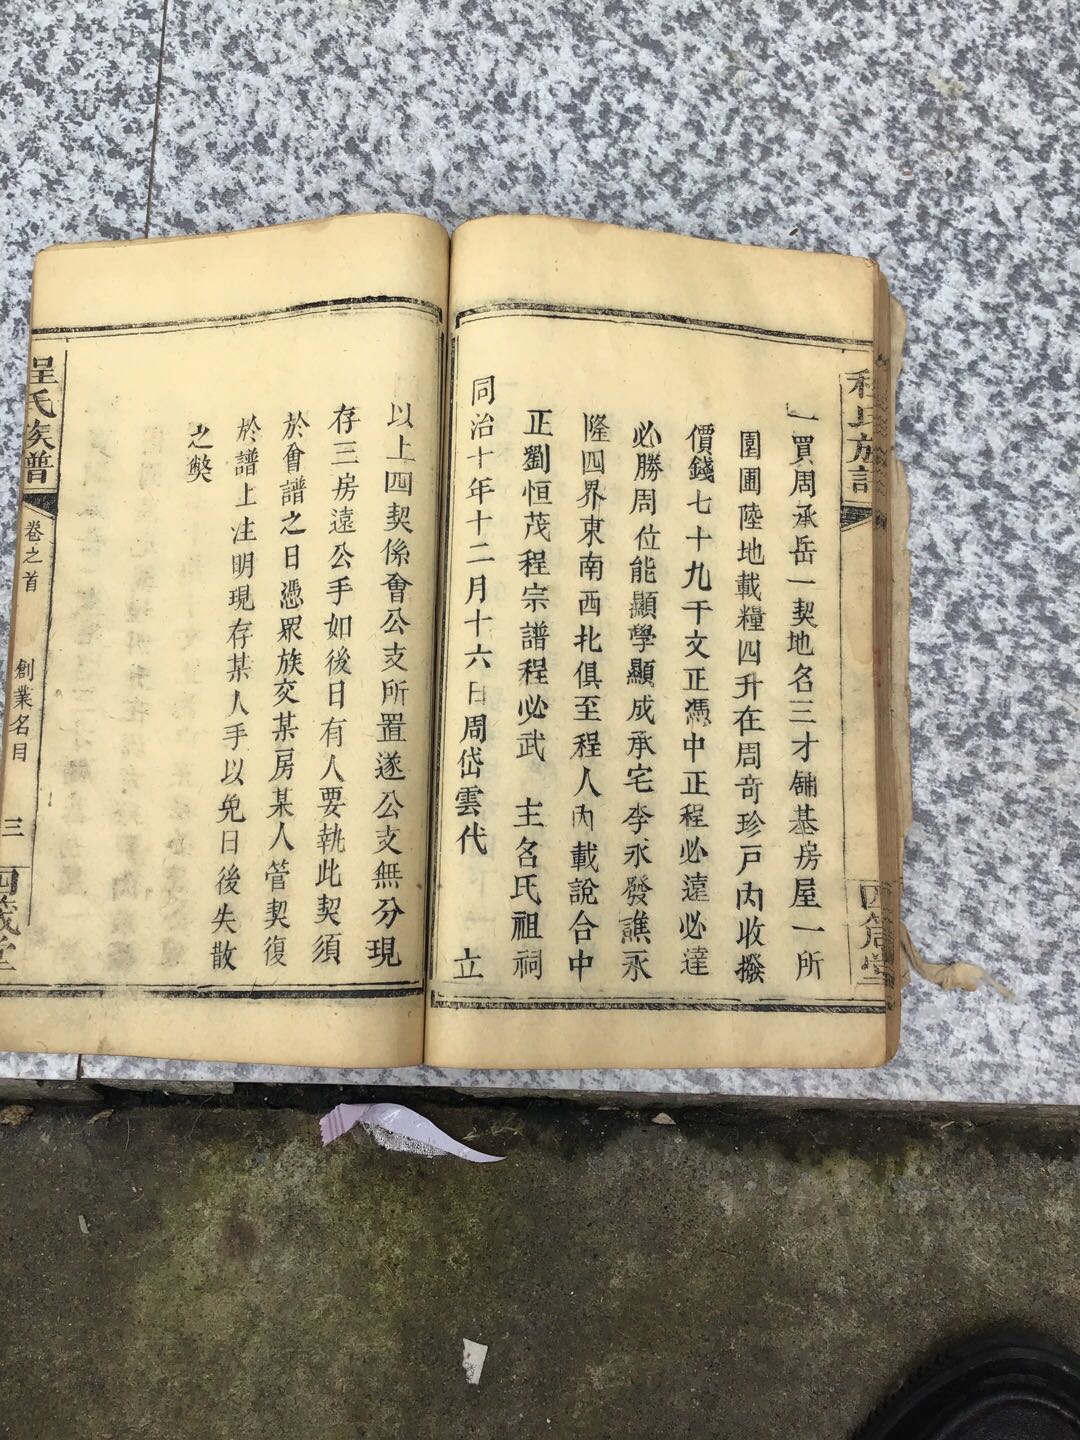 程氏族譜
四箴堂
一買周承岳一契地名三才鋪基房屋一所
園圃陸地載糧四升在周竒珍戸內收撥
價錢七十九千文正憑中正程必遠必達
必勝周位能顯學顯成承宅李永發譙永
隆四界東南西北俱至程人內載說合中
正劉恒茂程宗譜程必武　主名氏祖祠
同治十年十二月十六日周岱雲代　立
以上四契係會公支所置遂公支無分現
存三房遠公手如後日有人要執此契須
於會譜之日憑眾族交某房某人管契復
於譜上注明現存某人手以免日後失散
之獘
程氏族譜
卷之首
創業名目
三
四箴堂